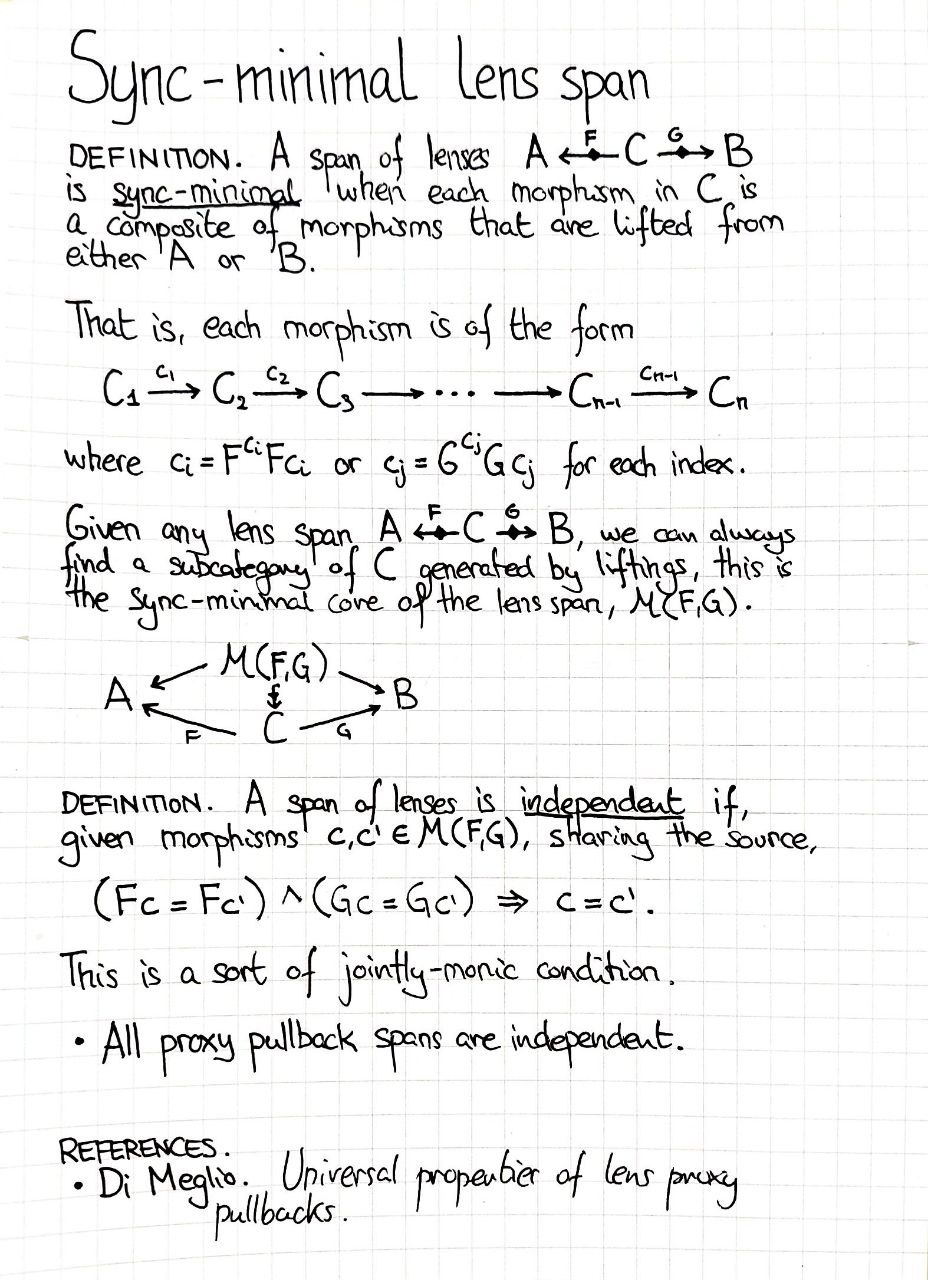 Sync-minimal lens span
DEFINITION. A span of lenses A ←F C G→ B
is sync-minimal when each morphism in C is
a composite of morphisms that are lifted from
either A or B.
That is, each morphism is of the form
C₁ c₁→ C₂ c₂→ C₃ → ··· → Cₙ₋₁ cₙ₋₁→ Cₙ
where cᵢ = F^{Cᵢ}Fcᵢ or cⱼ = G^{Cⱼ}Gcⱼ for each index.
Given any lens span A ←F C G→ B, we can always
find a subcategory of C generated by liftings, this is
the sync-minimal core of the lens span, M(F,G).
M(F,G)
A B
C
F G
DEFINITION. A span of lenses is independent if,
given morphisms c,c' ∈ M(F,G), sharing the source,
(Fc = Fc') ∧ (Gc = Gc') ⇒ c = c'.
This is a sort of jointly-monic condition.
• All proxy pullback spans are independent.
REFERENCES.
• Di Meglio. Universal properties of lens proxy
pullbacks.